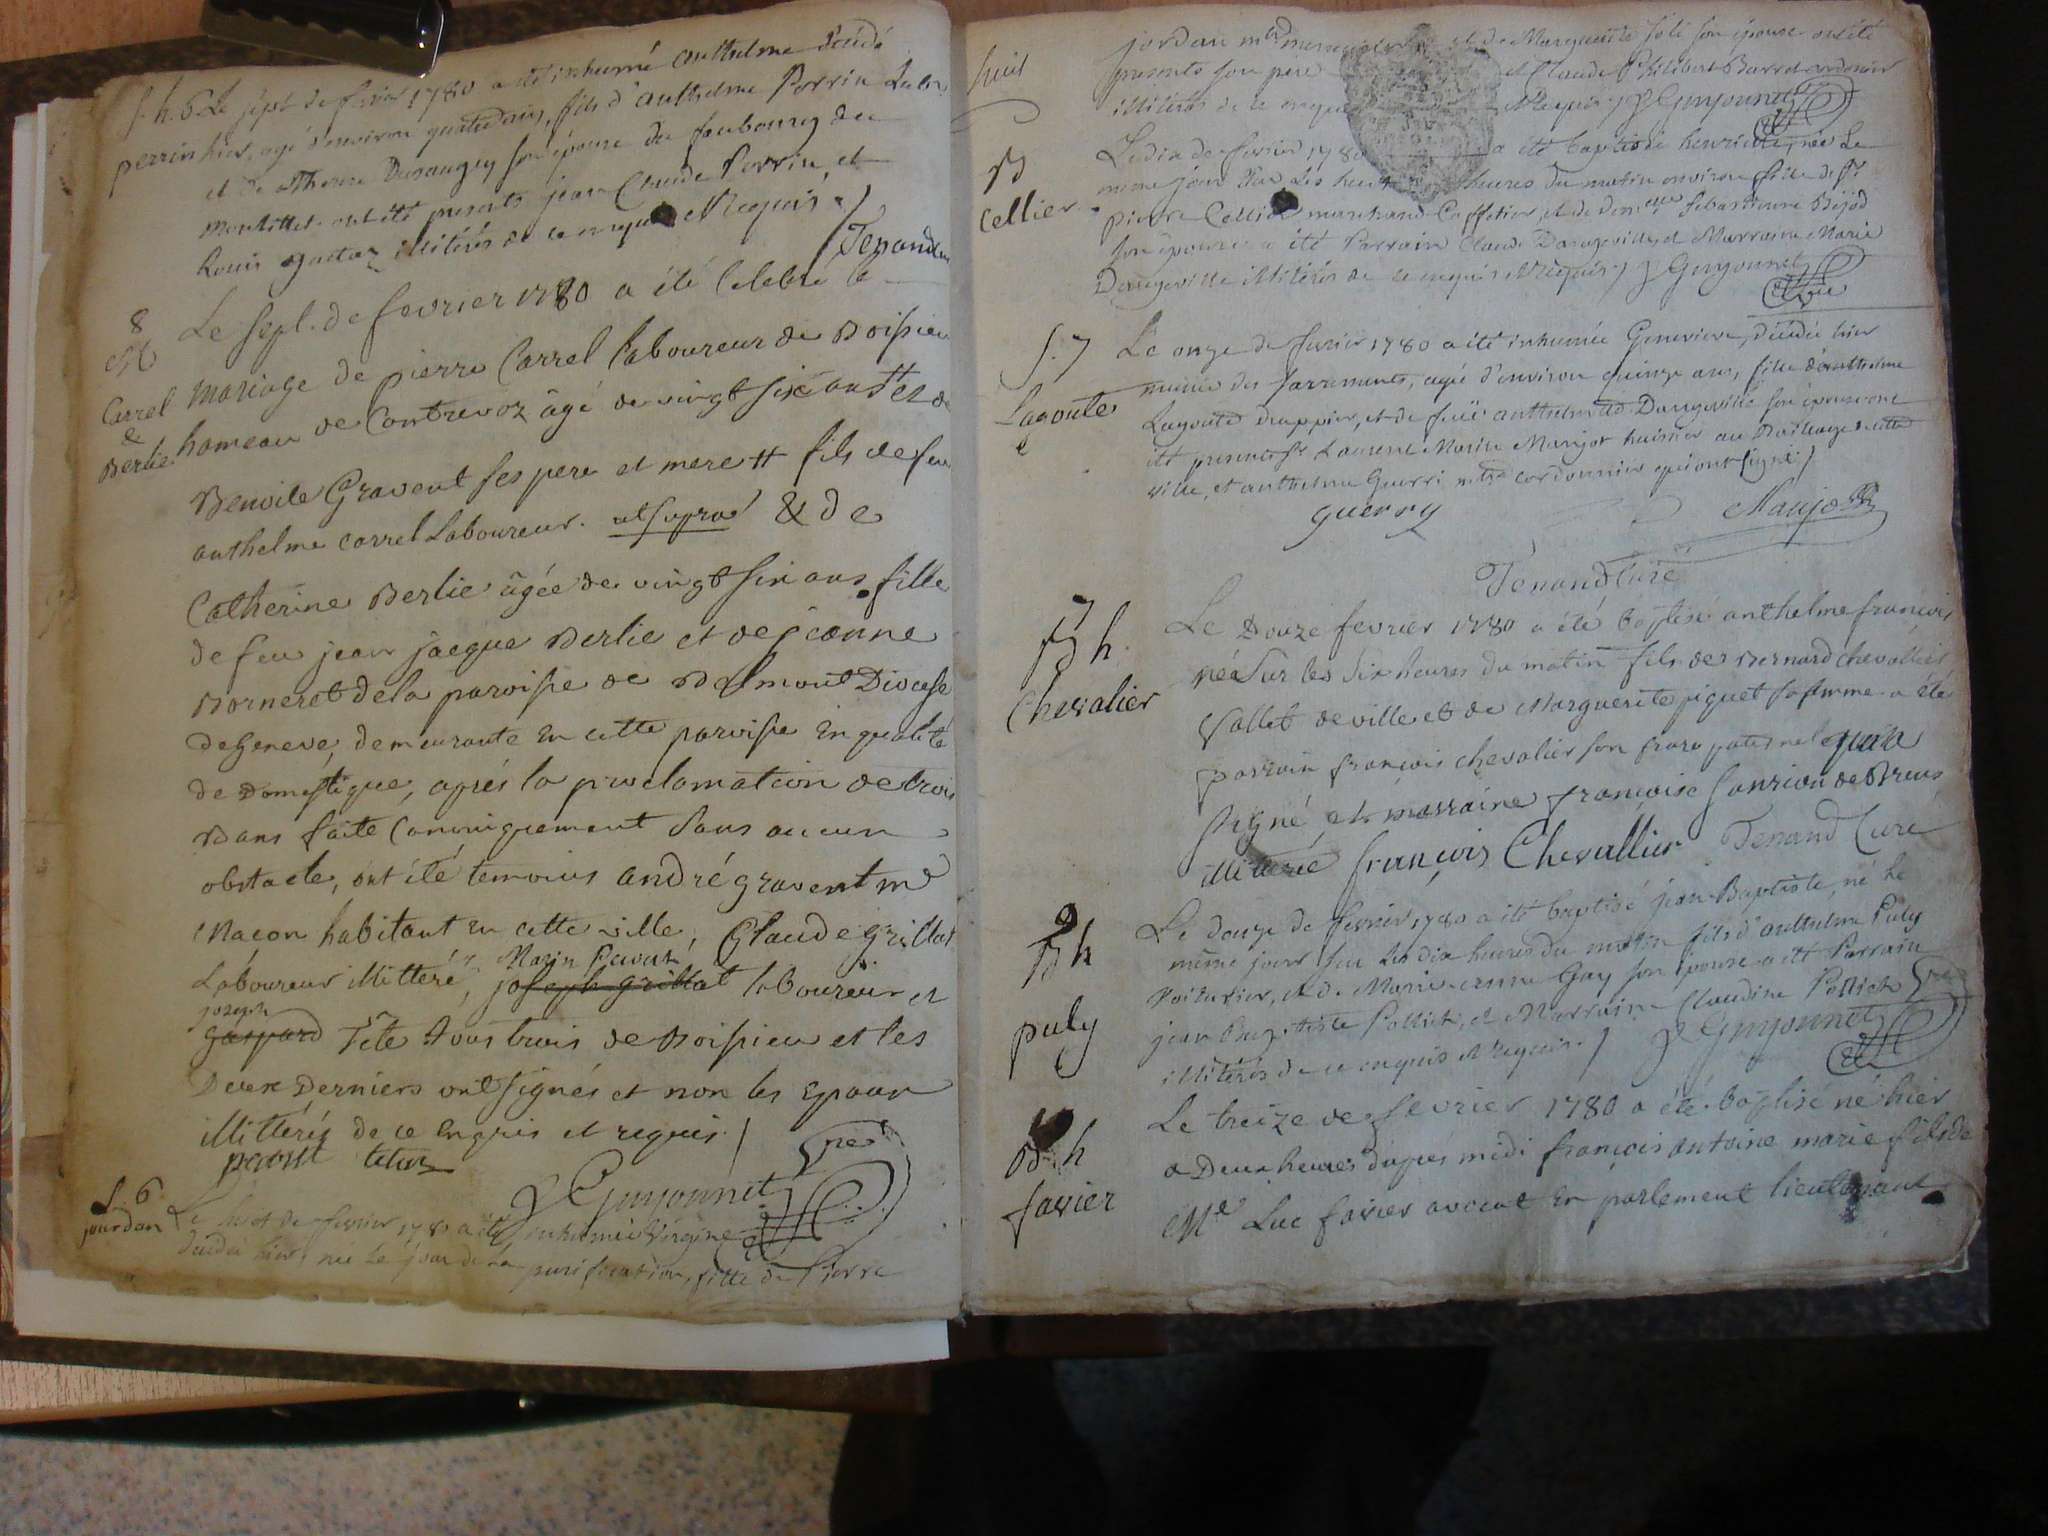 S. h. 6 Le sept de fevrier 1780 a été inhumé anthelme décédé
perrin hier, agé d'environ quatre ans, fils d'anthelme Perrin
et de Therese Dusaugey son épouse du faubourg du
ont été presents jean Claude Perrin, et
Louis illitérés de ce enquis & requis ./.
Tenand
8
M
Carrel
&
Berlie
Le sept de fevrier 1780 a été Celebré le
mariage de pierre Carrel Laboureur de Boissieu
hameau de Contrevoz âgé de vingt six ans et de
Benoite Gravent ses pere et mere # fils de feu
anthelme carrel Laboureur. ut supra & de
Catherine Berlie âgée de vingt six ans fille
de feu jean jacque Berlie et de jeanne
Borneret de la paroisse de Belmont Diocese
de Geneve, demeurante en cette paroisse En qualité
de Domestique, aprés la proclamation de trois
Bans faite Canoniquement Sans aucun
obstacle, ont été temoins andré gravent me
Macon habitant en cette ville, Claude grillat
Laboureur illitteré, joseph grillat laboureur et
joseph
gaspard Tête tous trois de Boissieu et les
Deux Derniers ont signés et non les Epoux
illittérés de ce Enquis et requis /
J Guyonnet
S. 6
jourdan
Le huit de fevrier 1780 a été inhumée Virgine
décédée hier, née le jour de la purification, fille de Pierre
jordan et de Marguerite son épouse ont été
presents son pere et Claude Philibert Barret cordonier
illitérés de ce enquis & requis / J Guyonnet
B
Cellier
Le dix de fevrier 1780 a été baptisée henriette, née le
même jour sur les huit heures du matin environ fille de Sr
pierre Cellier marchand Caffetier, et de demelle Sebastienne Bejod
son épouse a été Parrain Claude Dangeville, et Marraine Marie
Dangeville illitérés de ce enquis & requis / J Guyonnet
S. 7
Lagoute
Le onze de fevrier 1780 a été inhumée Genevieve, décédée hier
munie des sacrements, agée d'environ quinze ans, fille d'anthelme
Lagoute drappier, et de feüe anthelmette Dangeville son épouse ont
été presents Sr Laurent Marin Maujot huissier au Bailliage de cette
ville, et anthelme Guerri mtre cordonnier qui ont signé /
guerry
Maujot
Tenand Curé
7
B h
Chevalier
Le Douze fevrier 1780 a été baptisé anthelme françois
né sur les six heures du matin fils de Bernard chevallier
Vallet de ville et de Marguerite piguet sa femme a été
parrain françois chevalier son frere paternel qui a
signé et marraine françoise
illitterée françois Chevallier Tenand Curé
9
B h
puly
Le douze de fevrier 1780 a été baptisé jean Baptiste, né le
même jour sur les dix heures du matin fils d'anthelme Puly
Voiturier, et de Marie anne Gay son épouse a été Parrain
jean baptiste Pollick, et Marraine Claudine Pollick
illitérés de ce enquis & requis. / J Guyonnet
B h
favier
Le treize de fevrier 1780 a été baptisé né hier
a Deux heures d'aprés midi françois antoine marie fils de
Me Luc favier avocat En parlement lieutenant